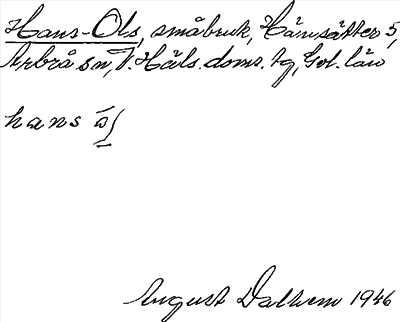 Hans-Ols, småbruk, Hämsätter 5,
Arbrå sn, V. Häls. doms. tg, Gvl. län
hans ôʃ
August Dalhem 1946